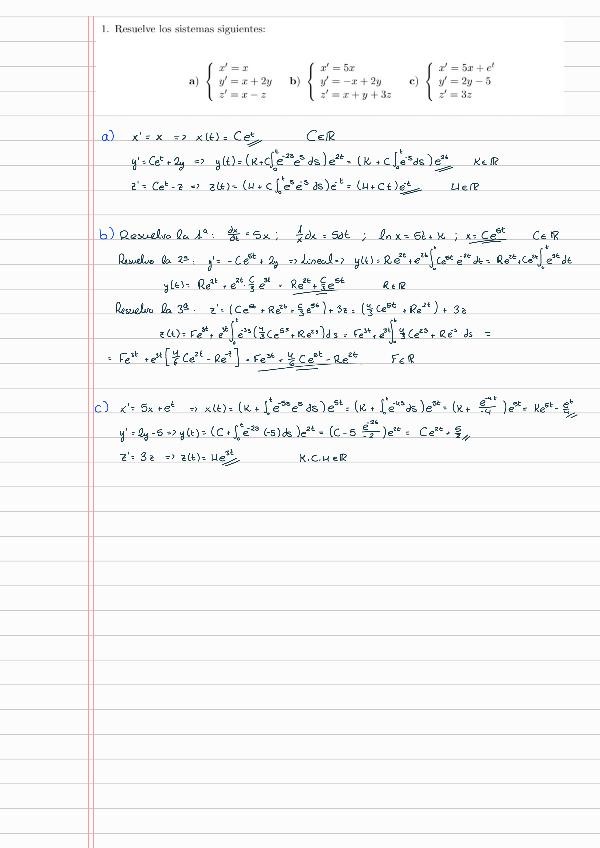 1. Resuelve los sistemas siguientes:
a) { x' = x   b) { x' = 5x   c) { x' = 5x + e^t
y' = x + 2y   y' = −x + 2y   y' = 2y − 5
z' = x − z   z' = x + y + 3z   z' = 3z
a) x' = x => x(t) = Ce^t   C∈ℝ
y' = Ce^t + 2y => y(t) = (K + C∫₀^t e^-2s e^s ds) e^2t = (K + C∫₀^t e^-s ds) e^2t   K∈ℝ
z' = Ce^t - z => z(t) = (H + C∫₀^t e^s e^s ds) e^-t = (H + Ct) e^-t   H∈ℝ
b) Resuelvo la 1ª: dx/dt = 5x ; 1/x dx = 5dt ; ln x = 5t + K ; x = Ce^5t   C∈ℝ
Resuelvo la 2ª: y' = -Ce^5t + 2y => Lineal => y(t) = Re^2t + e^2t ∫₀^t Ce^5t e^-2t dt = Re^2t + Ce^2t ∫₀^t e^3t dt
y(t) = Re^2t + e^2t C/3 e^3t = Re^2t + C/3 e^5t   R∈ℝ
Resuelvo la 3ª: z' = (Ce^5t + Re^2t + C/3 e^5t) + 3z = (4/3 Ce^5t + Re^2t) + 3z
z(t) = Fe^3t + e^3t ∫₀^t e^-3s (4/3 Ce^5s + Re^2s) ds = Fe^3t + e^3t ∫₀^t 4/3 Ce^2s + Re^-s ds =
= Fe^3t + e^3t [4/6 Ce^2t - Re^-t] = Fe^3t + 4/6 Ce^5t - Re^2t   F∈ℝ
c) x' = 5x + e^t => x(t) = (K + ∫₀^t e^-5s e^s ds) e^5t = (K + ∫₀^t e^-4s ds) e^5t = (K + e^-4t/-4) e^5t = Ke^5t - e^t/4
y' = 2y - 5 => y(t) = (C + ∫₀^t e^-2s (-5) ds) e^2t = (C - 5 e^-2t/-2) e^2t = Ce^2t + 5/2
z' = 3z => z(t) = He^3t   K, C, H ∈ℝ